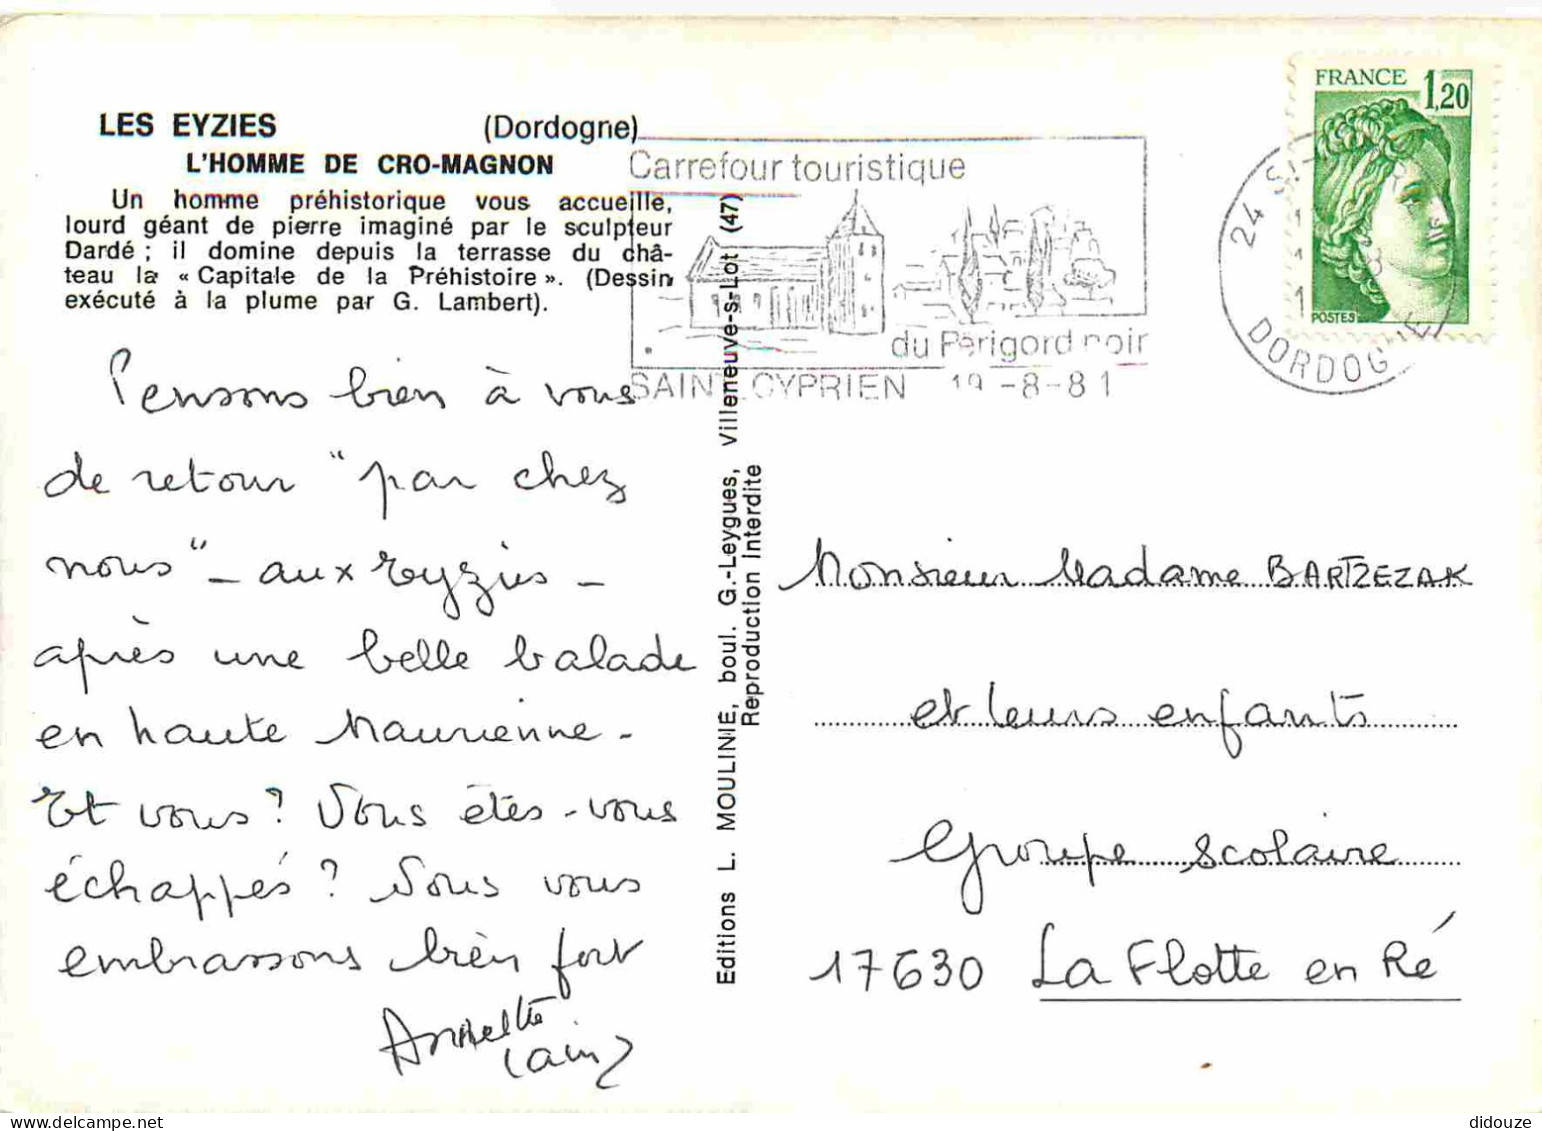 LES EYZIES (Dordogne)
L'HOMME DE CRO-MAGNON
Un homme préhistorique vous accueille,
lourd géant de pierre imaginé par le sculpteur
Dardé ; il domine depuis la terrasse du châ-
teau la « Capitale de la Préhistoire ». (Dessin
exécuté à la plume par G. Lambert).
Carrefour touristique
du Périgord noir
SAINT CYPRIEN 19-8-81
24 S
DORDOGNE
FRANCE 1,20
POSTES
Pensons bien à vous
de retour "par chez
nous" - aux Eyzies -
après une belle balade
en haute Maurienne.
Et vous ? Vous êtes-vous
échappés ? Nous vous
embrassons bien fort
Annette
Editions L. MOULINIE, boul. G.-Leygues, Villeneuve-s-Lot (47)
Reproduction interdite
Monsieur Madame BARTZEZAK
et leurs enfants
Groupe scolaire
17630 La Flotte en Ré
didouze